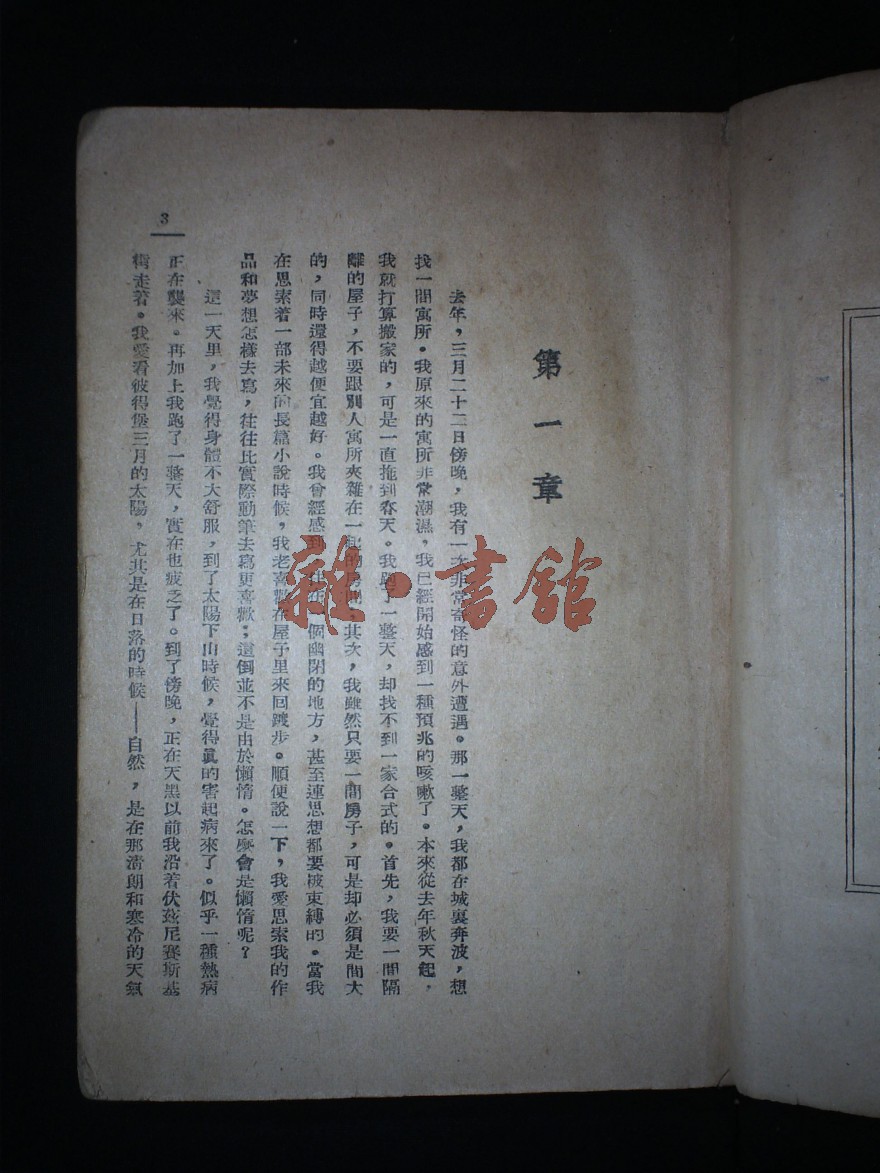 第一章
去年，三月二十二日傍晚，我有一次非常奇怪的意外遭遇。那一整天，我都在城裏奔波，想
找一間寓所。我原來的寓所非常潮濕，我已經開始感到一種預兆的咳嗽了。本來從去年秋天起，
我就打算搬家的，可是一直拖到春天。我跑了一整天，却找不到一家合式的。首先，我要一間隔
離的屋子，不要跟別人寓所夾雜在一起的房間，其次，我雖然只要一間房子，可是却必須是間大
的，同時還得越便宜越好。我曾經感到，住在一個幽閉的地方，甚至連思想都要被束縛的。當我
在思索着一部未來的長篇小說時候，我老喜歡在屋子里來回踱步。順便說一下，我愛思索我的作
品和夢想怎樣去寫，往往比實際動筆去寫更喜歡；這倒並不是由於懶惰。怎麽會是懶惰呢？
這一天里，我覺得身體不大舒服，到了太陽下山時候，覺得眞的害起病來了。似乎一種熱病
正在襲來。再加上我跑了一整天，實在也疲乏了。到了傍晚，正在天黑以前我沿着伏茲尼賽斯基
街走着。我愛看彼得堡三月的太陽，尤其是在日落的時候——自然，是在那清朗和寒冷的天氣
3
雜·書館